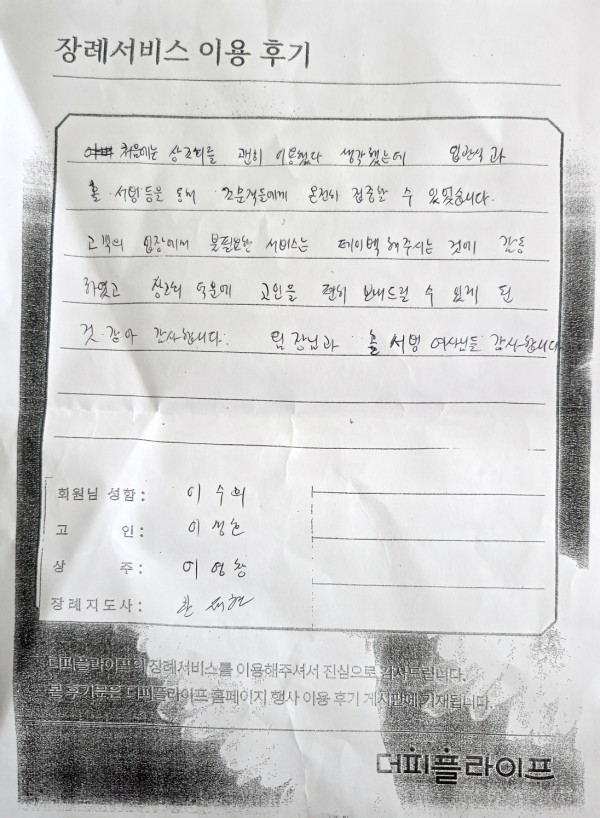 장례서비스 이용 후기
처음에는 상조회를 괜히 이용했다 생각했는데 입관식과
홀 서빙등을 통해 조문객들에게 온전히 집중할 수 있었습니다.
고객의 입장에서 불필요한 서비스는 페이백 해주시는 것에 감동
하였고 상조회 덕분에 고인을 편히 보내드릴 수 있게 된
것 같아 감사합니다. 팀장님과 홀 서빙 여사님들 감사합니다
회원님 성함: 이수희
고 인:
상 주: 이영창
장례지도사:
더피플라이프의 장례서비스를 이용해주셔서 진심으로 감사드립니다.
본 후기글은 더피플라이프 홈페이지 행사 이용 후기 게시판에 기재됩니다.
더피플라이프